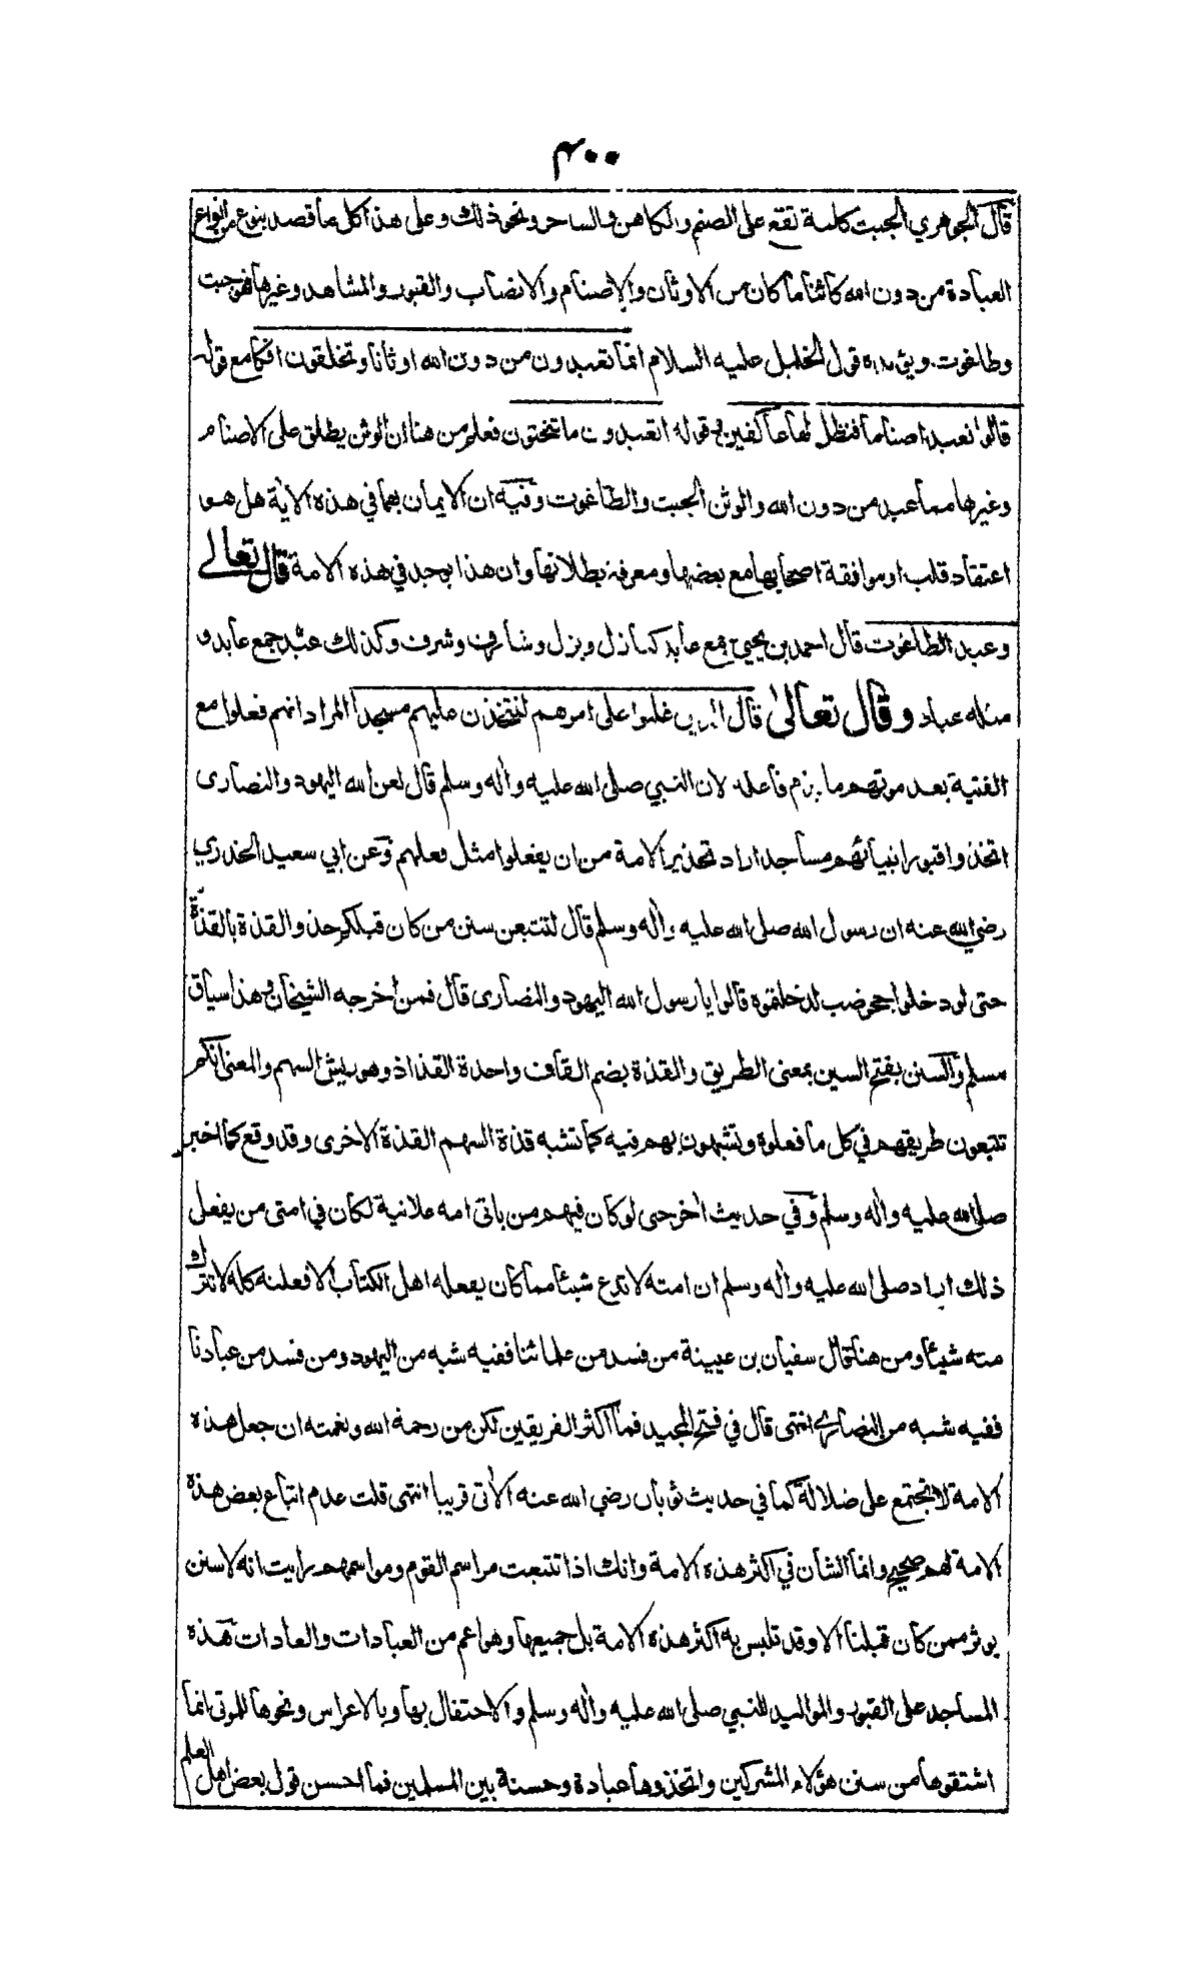 ٤٠٠
قال الجوهري الجبت كلمة تقع على الصنم والكاهن والساحر ونحو ذلك وعلى هذا كل ما قصد بنوع من انواع
العبادة من دون الله كائنا ما كان من الاوثان والاصنام والانصاب والقبور والمشاهد وغيرها فهو جبت
وطاغوت ويؤيده قول الخليل عليه السلام انما تعبدون من دون الله اوثانا وتخلقون افكا مع قوله
قالوا نعبد اصناما فنظل لها عاكفين وقوله اتعبدون ما تنحتون فعلم من هنا ان الوثن يطلق على الاصنام
وغيرها مما عبد من دون الله والوثن الجبت والطاغوت وفيه ان الايمان بهما في هذه الاية هل هو
اعتقاد قلب او موافقة اصحابها مع بعضها ومعرفة بطلانها وان هذا يوجد في هذه الامة قال تعالى
وعبد الطاغوت قال احمد بن يحيى جمع عابد كبازل وبزل وشارف وشرف وكذلك عبد جمع عابد و
مثله عباد وقال تعالى قال الذين غلبوا على امرهم لنتخذن عليهم مسجدا المراد انهم فعلوا مع
الفتية بعد موتهم ما يذم فاعله لان النبي صلى الله عليه واله وسلم قال لعن الله اليهود والنصارى
اتخذوا قبور انبيائهم مساجد اراد تحذير الامة من ان يفعلوا مثل فعلهم وعن ابي سعيد الخدري
رضي الله عنه ان رسول الله صلى الله عليه واله وسلم قال لتتبعن سنن من كان قبلكم حذو القذة بالقذة
حتى لو دخلوا جحر ضب لدخلتموه قالوا يا رسول الله اليهود والنصارى قال فمن اخرجه الشيخان وهذا سياق
مسلم والسنن بفتح السين بمعنى الطريق والقذة بضم القاف واحدة القذاذ وهو ريش السهم والمعنى انكم
تتبعون طريقهم في كل ما فعلوه وتشبهون بهم فيه كما تشبه قذة السهم القذة الاخرى وقد وقع كما اخبر
صلى الله عليه واله وسلم وفي حديث اخر حتى لو كان فيهم من ياتى امه علانية لكان في امتى من يفعل
ذلك اراد صلى الله عليه واله وسلم ان امته لا تدع شيئا مما كان يفعله اهل الكتاب الا فعلته كله لا تترك
منه شيئا ومن هنا قال سفيان بن عيينة من فسد من علمائنا ففيه شبه من اليهود ومن فسد من عبادنا
ففيه شبه من النصارى انتهى قال في فتح المجيد فما اكثر الفريقين لكن من رحمة الله ونعمته ان جعل هذه
الامة لا تجتمع على ضلالة كما في حديث ثوبان رضي الله عنه الاتى قريبا انتهى قلت عدم اتباع بعض هذه
الامة لهم صحيح وانما الشان في اكثر هذه الامة وانك اذا تتبعت مراسم القوم ومواسمهم رايت انه لا سنن
يوثر ممن كان قبلنا الا وقد تلبس به اكثر هذه الامة بل جميعها وهو اعم من العبادات والعادات فهذه
المساجد على القبور والمواليد للنبي صلى الله عليه واله وسلم والاحتفال بها وبالاعراس ونحوها للموتى انما
اشتقوها من سنن هؤلاء المشركين واتخذوها عبادة وحسنة بين المسلمين فما احسن قول بعض اهل العلم